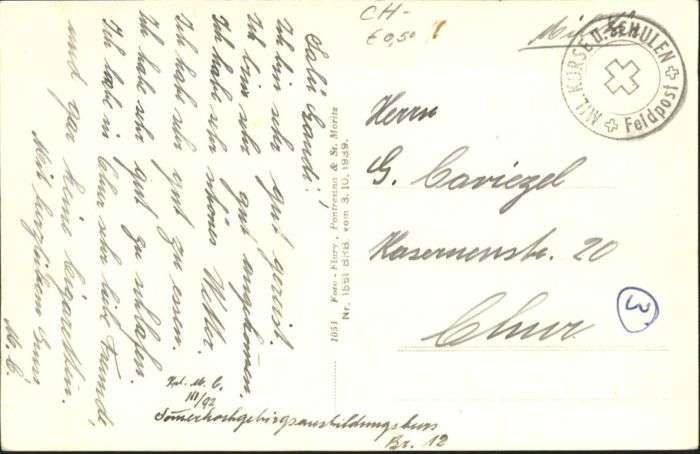 CH-
€ 0,50
Militär
MIL. KURSE U. SCHULEN
Feldpost
Herrn
G. Caviezel
Kasernenstr. 20
Chur
3
1051 Foto-Flury, Pontresina & St. Moritz
Nr. 1561 BRB vom 3. 10. 1939.
Salü
Ich bin sehr gut gereist.
Ich bin sehr gut angekommen.
Ich habe sehr schönes Wetter.
Ich habe sehr gut zu essen.
Ich habe sehr gut zu schlafen.
Ich habe in Chur sehr liebe Freunde,
und gar keine Cigaretten.
Mit herzlichem Gruss
M. C.
M. C.
III/92
Sommerhochgebirgsausbildungskurs
Br. 12